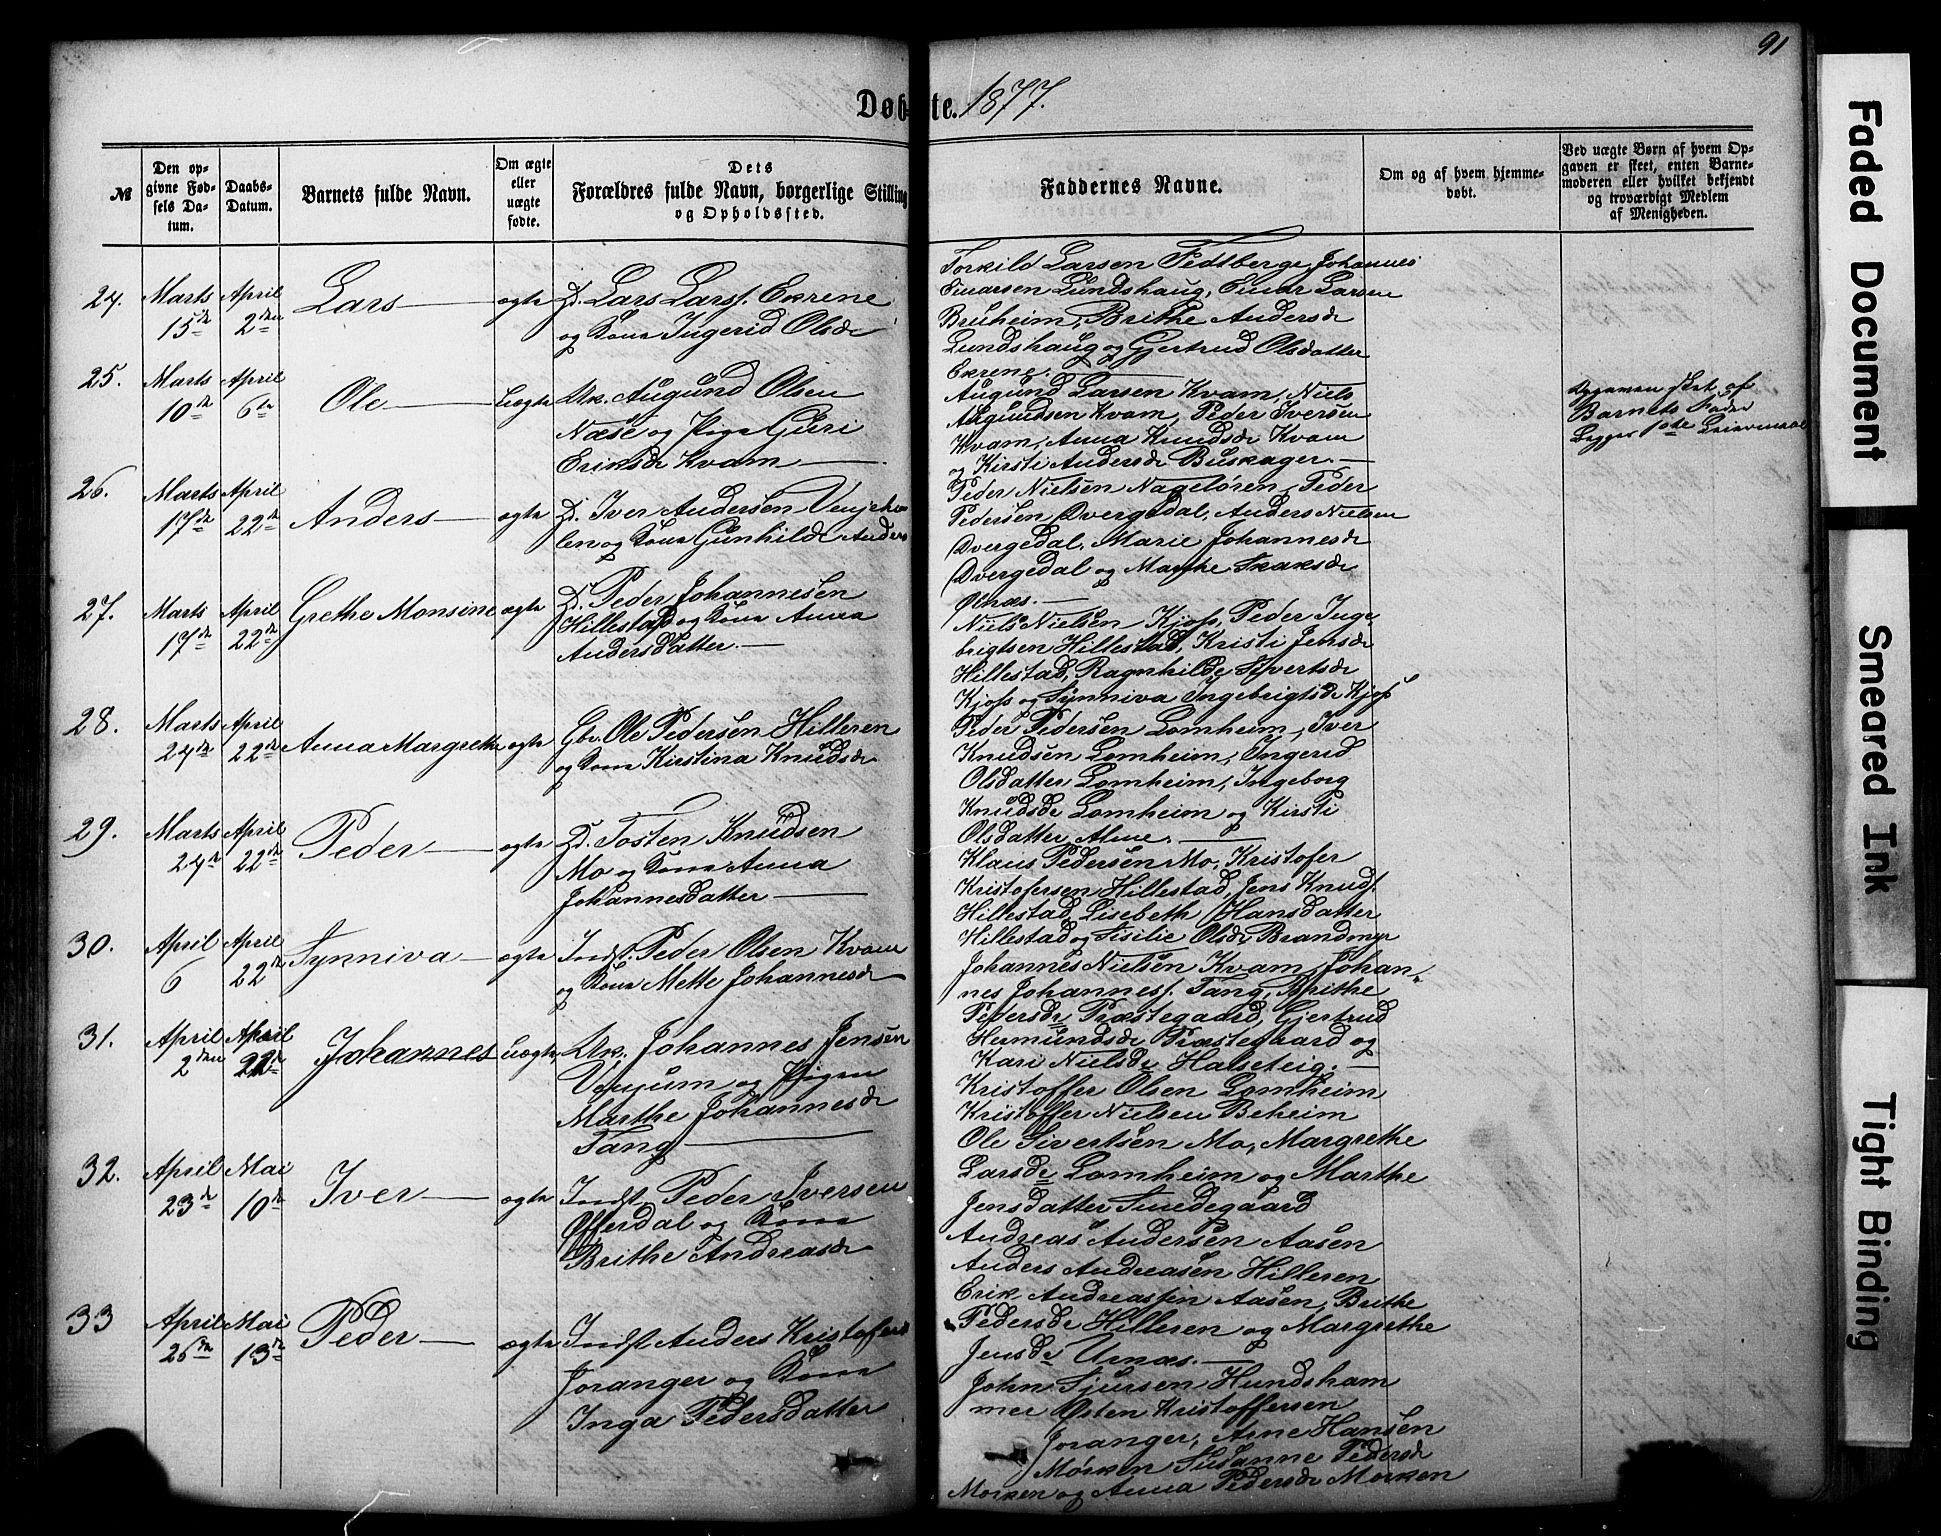 91
Døbte. 1877.
№
Den opgivne Fødsels Datum.
Daabs-Datum.
Barnets fulde Navn.
Om ægte eller uægte fødte.
Dets Forældres fulde Navn, borgerlige Stilling og Opholdssted.
Faddernes Navne.
Om og af hvem hjemmedøbt.
Ved uægte Børn af hvem Opgaven er skeet, enten Barnemoderen eller hvilket bekjendt og troværdigt Medlem af Menigheden.
24. Marts 15de April 2den Lars ægte
Gd. Lars Larss. Ekrene
og Kone Ingerid Olsdr
Torkild Larsen Fedtberge, Johannes
Einarsen Lundshaug, Einar Larsen
Bruheim, Brithe Andersdr
Lundshaug og Gjertrud Olsdatter
Ekrene.
25. Marts 10de April 6te Ole Uægte
Uk. Augund Olsen
Næse og Pige Guri
Eriksdr Kvam
Augund Larsen Kvam, Niels
Augundsen Kvam, Peder Iversen
Kvam, Anna Knudsdr Kvam
og Kirsti Andersdr Buskager.
Opgaven sket af
Barnets Fader
Begges 1ste Leiermaal
26. Marts 17de April 22de Anders ægte
Gd. Iver Andersen
len og Kone Gunhilde Anders
Peder Nielsen Nageløren, Peder
Pedersen Dvergedal, Anders Nielsen
Dvergedal, Marie Johannesdr
Dvergedal og Marthe
27. Marts 17de April 22de Grethe Monsine ægte
Gd. Peder Johannesen
Hillestad og Kone Anna
Andersdatter.
Niels Nielsen Kjos, Peder Inge
brigtsen Hillestad, Kristi Jensdr
Hillestad, Ragnhilde Sivertsdr
Kjos og Synniva Ingebrigtsdr Kjos
28. Marts 24de April 22de Anna Margrethe ægte
Gbr. Ole Pedersen Hilleren
og Kone Kirstina Knudsdr
Peder Pedersen Lomheim, Iver
Knudsen Lomheim, Ingerid
Olsdatter Lomheim, Ingeborg
Knudsdr Lomheim og Kirsti
Olsdatter Alme.
29. Marts 24de April 22de Peder ægte
Gd. Tosten Knudsen
Mo og Kone Anna
Johannesdatter
Klaus Pedersen Mo, Kristofer
Kristofersen Hillestad, Jens Knuds.
Hillestad, Lisebeth Hansdatter
Hillestad og Sisilie Olsdr Brandmyr
30. April 6 April 22de Synniva ægte
Indst. Peder Olsen Kvam
og Kone Mette Johannesdr
Johannes Nielsen Kvam, Johan-
nes Johanness. Tang, Brithe
Pedersdr Præstegaard, Gjertrud
Hermundsdr Præstegaard og
Kari Nielsdr Halseteig.
31. April 2den April 22de Johannes Uægte
Uk. Johannes Jensen
og Pigen
Marthe Johannesdr
Tang
Kristoffer Olsen Lomheim
Kristoffer Nielsen Beheim
Ole Sivertsen Mo, Margrethe
Larsdr Lomheim og Marthe
Jensdatter Smedegaard
32. April 23de Mai 10de Iver ægte
Indst Peder Iversen
Offerdal og Kone
Brithe Andreasdr
Andreas Andersen Aasen
Anders Andreasen Hilleren
Erik Andreassen Aasen, Brithe
Pedersdr Hilleren og Margrethe
Jensdr Urnæs.
33 April 26de Mai 13de Peder ægte
Indst Anders Kristofers
Joranger og Kone
Inga Pedersdatter
John Sjursen Hundsham
mer Østen Kristoffersen
Joranger, Arne Hansen
Mørken Susanne Pedersdr
Morken og Anna Pedersdr Morken
Faded Document
Smeared Ink
Tight Binding